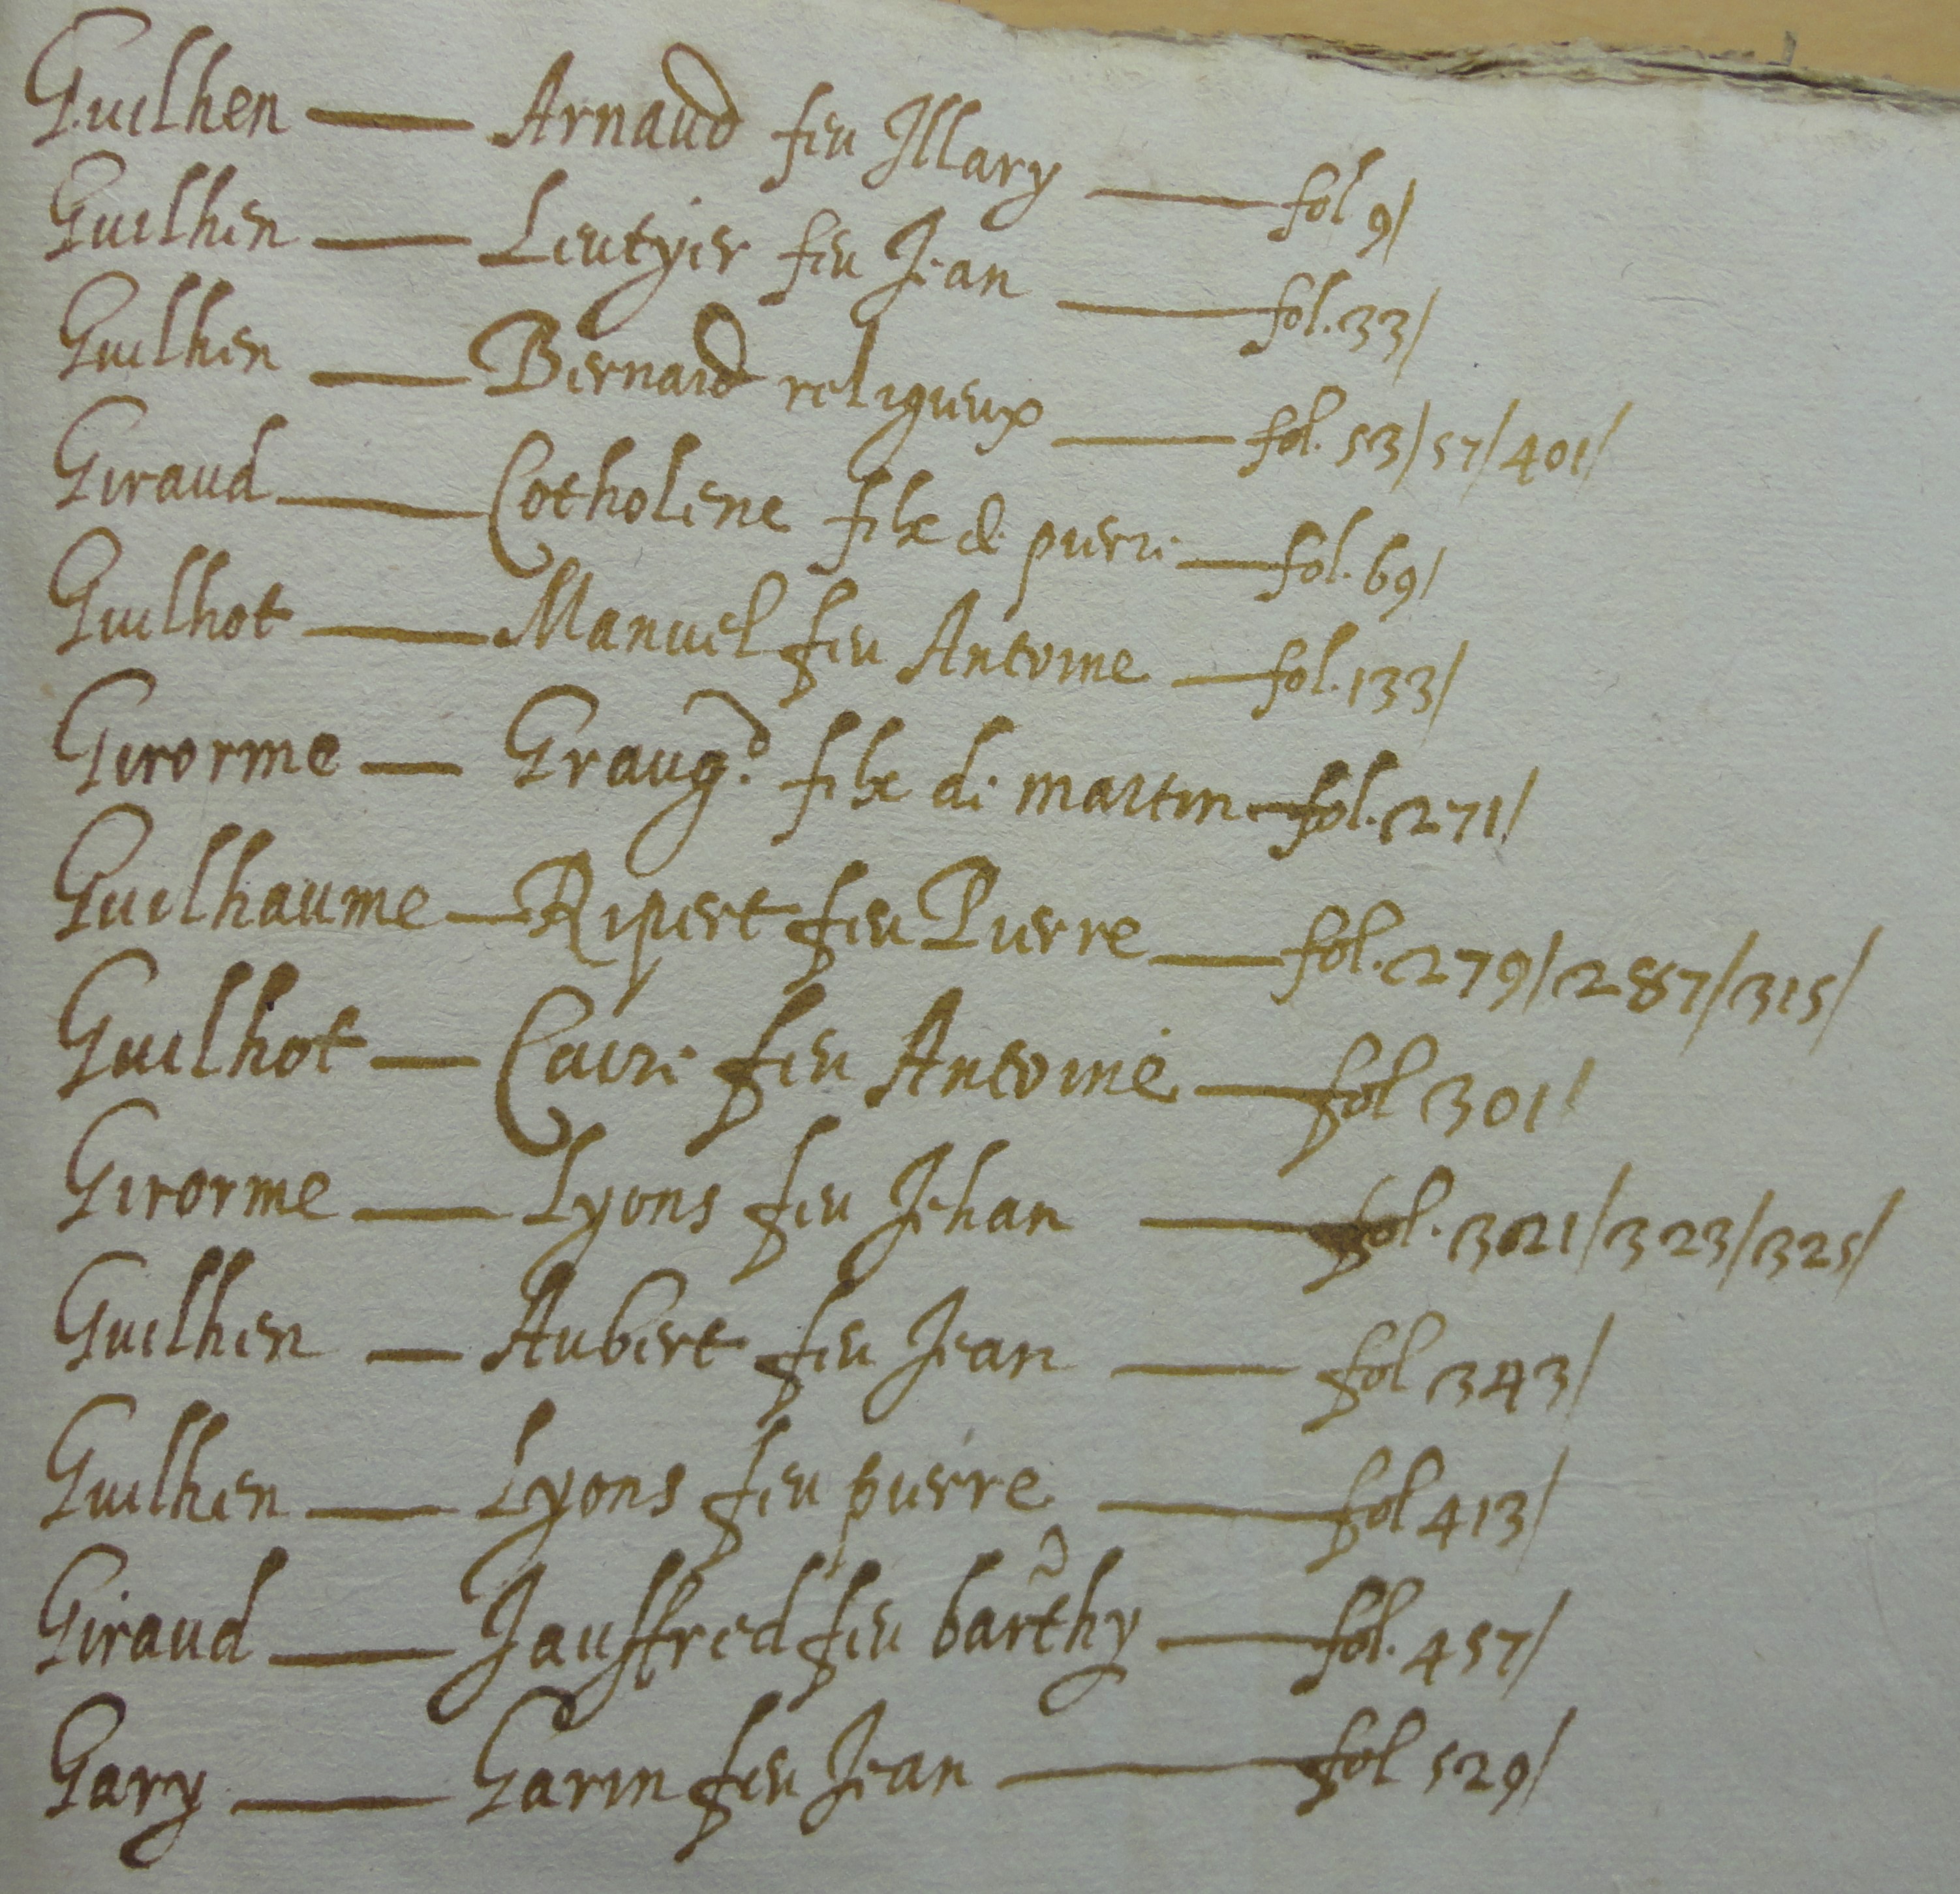 Guilhen — Arnaud feu Illary — fol 9/
Guilhen — Lieutyier feu Jean — fol. 33/
Guilhen — Bernard religieux — fol. 53/57/401/
Giraud — Cotholene filx de pierre — fol. 69/
Guilhot — Manuel feu Antoine — fol. 133/
Girorme — Graugd filx de martin — fol. 271/
Guilhaume — Ripert feu Pierre — fol. 279/287/315/
Guilhot — Cairi feu Antoine — fol 301/
Girorme — Lyons feu Jehan — fol. 321/323/325/
Guilhen — Aubert feu Jean — fol 343/
Guilhen — Lyons feu pierre — fol 413/
Giraud — Jauffred feu barthy — fol. 457/
Gary — Garin feu Jean — fol 529/